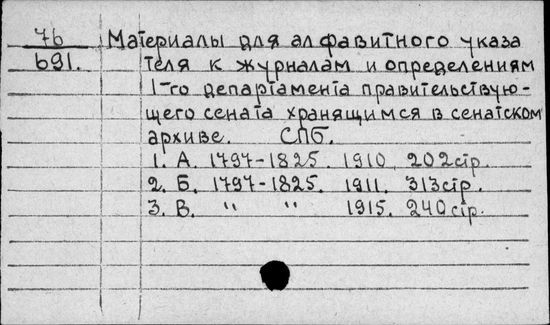 76 Материалы для алфавитного указа
691. теля к журналам и определениям
1-го департамента правительствую-
щего сената хранящимся в сенатском
архиве. СПб.
1. А. 1797-1825. 1910. 202стр.
2. Б. 1797-1825. 1911. 313стр.
3. В. " " 1915. 240стр.